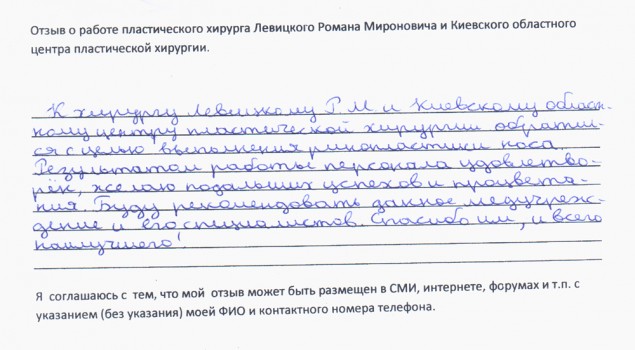 Отзыв о работе пластического хирурга Левицкого Романа Мироновича и Киевского областного
центра пластической хирургии.
К хирургу Левицкому Р.М. и Киевскому област-
ному центру пластической хирургии обратил-
ся с целью выполнения ринопластики носа.
Результатом работы персонала удовлетво-
рён, желаю подальших успехов и процвета-
ния. Буду рекомендовать данное медучреж-
дение и его специалистов. Спасибо им, и всего
наилучшего!
Я соглашаюсь с тем, что мой отзыв может быть размещен в СМИ, интернете, форумах и т.п. с
указанием (без указания) моей ФИО и контактного номера телефона.